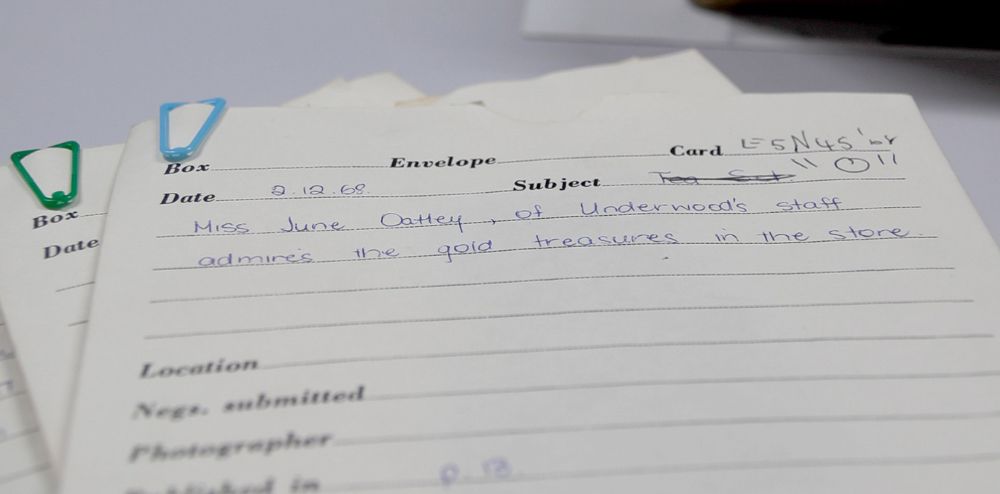 Box Envelope Card
Date 2.12.68 Subject Tea Set
Miss June Oatley, of Underwood's staff
admires the gold treasures in the store.
Location
Negs. submitted
Photographer
Published in p. 13
Box
Date